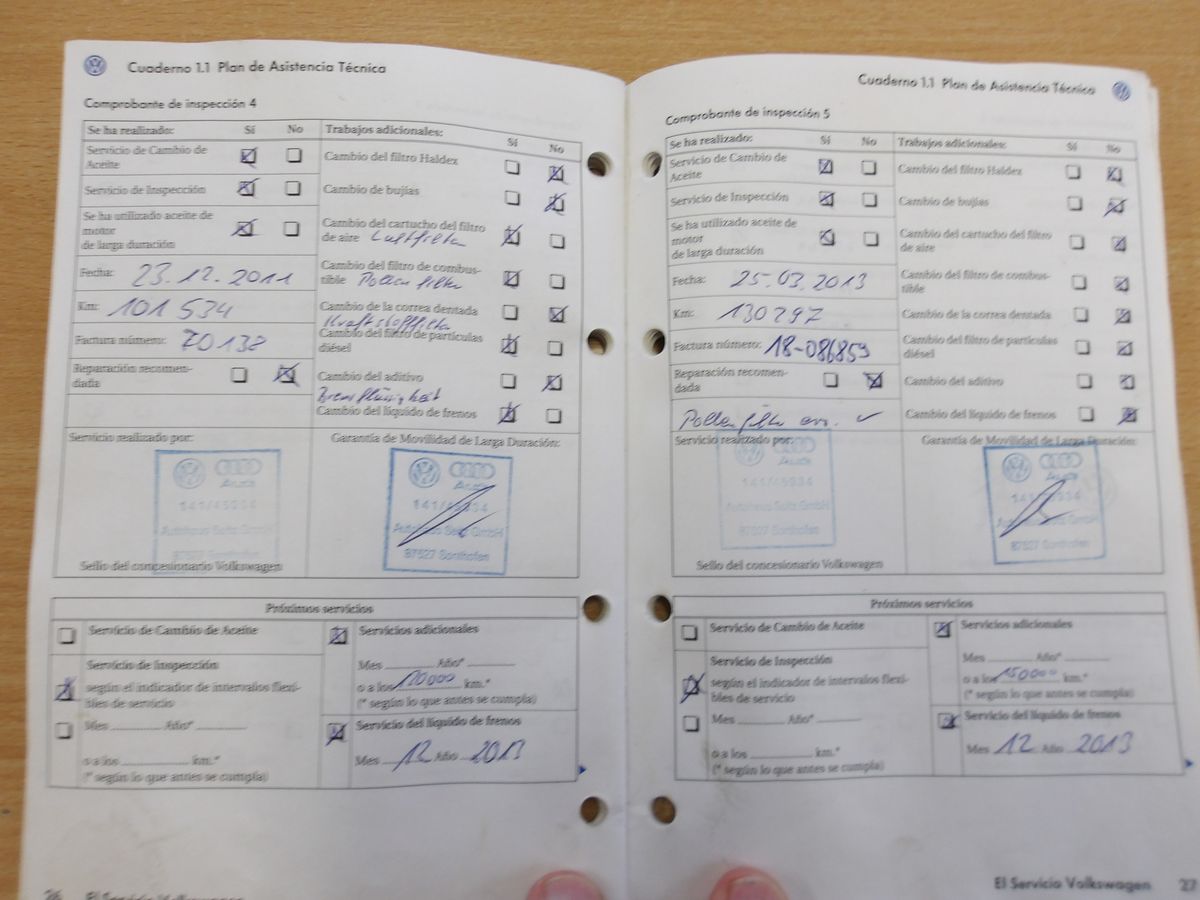 Cuaderno 1.1 Plan de Asistencia Técnica
Comprobante de inspección 4
Se ha realizado: Sí No
Servicio de Cambio de
Aceite
Servicio de Inspección
Se ha utilizado aceite de
motor
de larga duración
Fecha: 23.12.2011
Km: 101 534
Factura número: 70138
Reparación recomen-
dada
Trabajos adicionales: Sí No
Cambio del filtro Haldex
Cambio de bujías
Cambio del cartucho del filtro
de aire Luftfilter
Cambio del filtro de combus-
tible Pollenfilter
Cambio de la correa dentada
Kraftstofffilter
Cambio del filtro de partículas
diésel
Cambio del aditivo
Bremsflüssigkeit
Cambio del líquido de frenos
Servicio realizado por:
Garantía de Movilidad de Larga Duración:
141/45934
Autohaus Seitz GmbH
87527 Sonthofen
141/45934
Autohaus Seitz GmbH
87527 Sonthofen
Sello del concesionario Volkswagen
Próximos servicios
Servicio de Cambio de Aceite
Servicio de Inspección
según el indicador de intervalos flexi-
bles de servicio
Mes Año*
o a los km.*
(* según lo que antes se cumpla)
Servicios adicionales
Mes Año*
o a los 120000 km.*
(* según lo que antes se cumpla)
Servicio del líquido de frenos
Mes 12 Año 2013
26 El Servicio Volkswagen
Cuaderno 1.1 Plan de Asistencia Técnica
Comprobante de inspección 5
Se ha realizado: Sí No
Servicio de Cambio de
Aceite
Servicio de Inspección
Se ha utilizado aceite de
motor
de larga duración
Fecha: 25.03.2013
Km: 130297
Factura número: 18-086859
Reparación recomen-
dada
Pollenfilter ern.
Trabajos adicionales: Sí No
Cambio del filtro Haldex
Cambio de bujías
Cambio del cartucho del filtro
de aire
Cambio del filtro de combus-
tible
Cambio de la correa dentada
Cambio del filtro de partículas
diésel
Cambio del aditivo
Cambio del líquido de frenos
Servicio realizado por:
Garantía de Movilidad de Larga Duración:
141/45934
Autohaus Seitz GmbH
87527 Sonthofen
141/45934
Autohaus Seitz GmbH
87527 Sonthofen
Sello del concesionario Volkswagen
Próximos servicios
Servicio de Cambio de Aceite
Servicio de Inspección
según el indicador de intervalos flexi-
bles de servicio
Mes Año*
o a los km.*
(* según lo que antes se cumpla)
Servicios adicionales
Mes Año*
o a los 150000 km.*
(* según lo que antes se cumpla)
Servicio del líquido de frenos
Mes 12 Año 2013
El Servicio Volkswagen 27